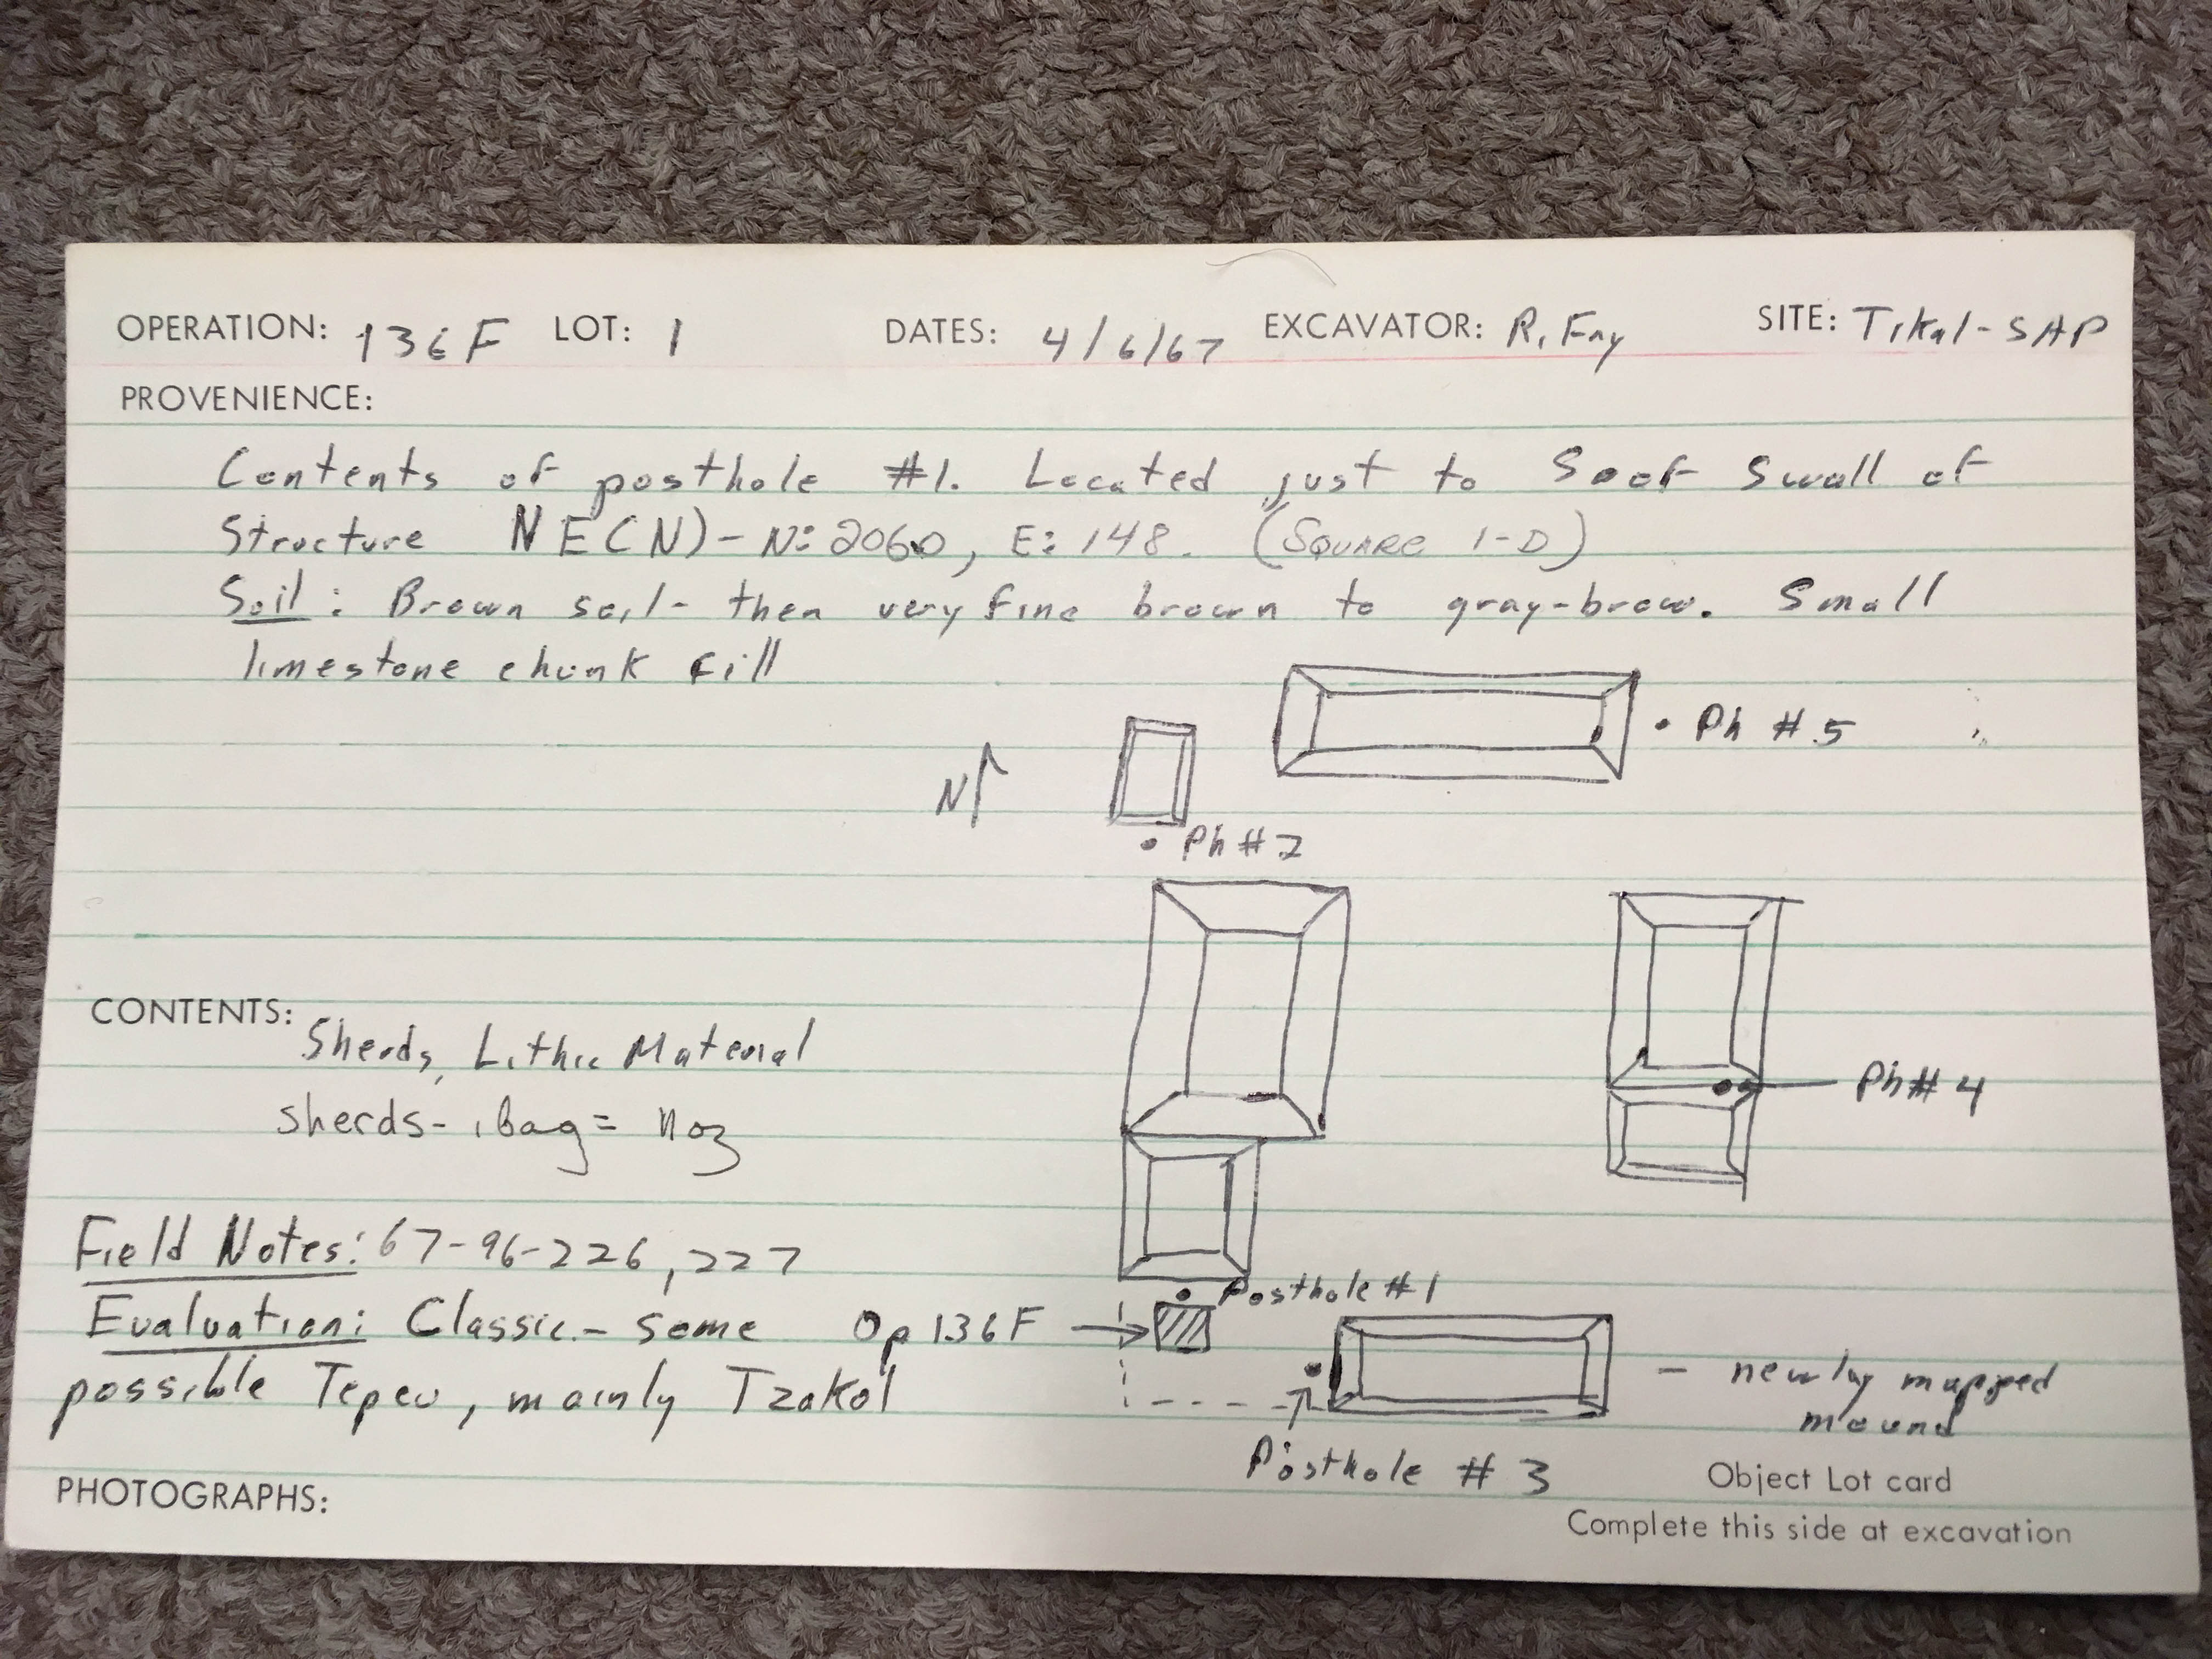 OPERATION: 136F LOT: 1 DATES: 4/6/67 EXCAVATOR: R. Fry SITE: Tikal-SAP
PROVENIENCE:
Contents of posthole #1. Located just to S of S wall of
Structure NE(N)- N: 2060, E: 148. (SQUARE 1-D)
Soil: Brown soil- then very fine brown to gray-brow. Small
limestone chunk fill
Ph #5
N
Ph #2
CONTENTS:
Sherds, Lithic Material
Ph #4
sherds- 1bag=
Field Notes: 67-96-226, 227
Posthole #1
Evaluation: Classic- some
Op 136F
possible Tepeu, mainly Tzakol
- newly mapped
mound
Posthole #3
Object Lot card
PHOTOGRAPHS:
Complete this side at excavation